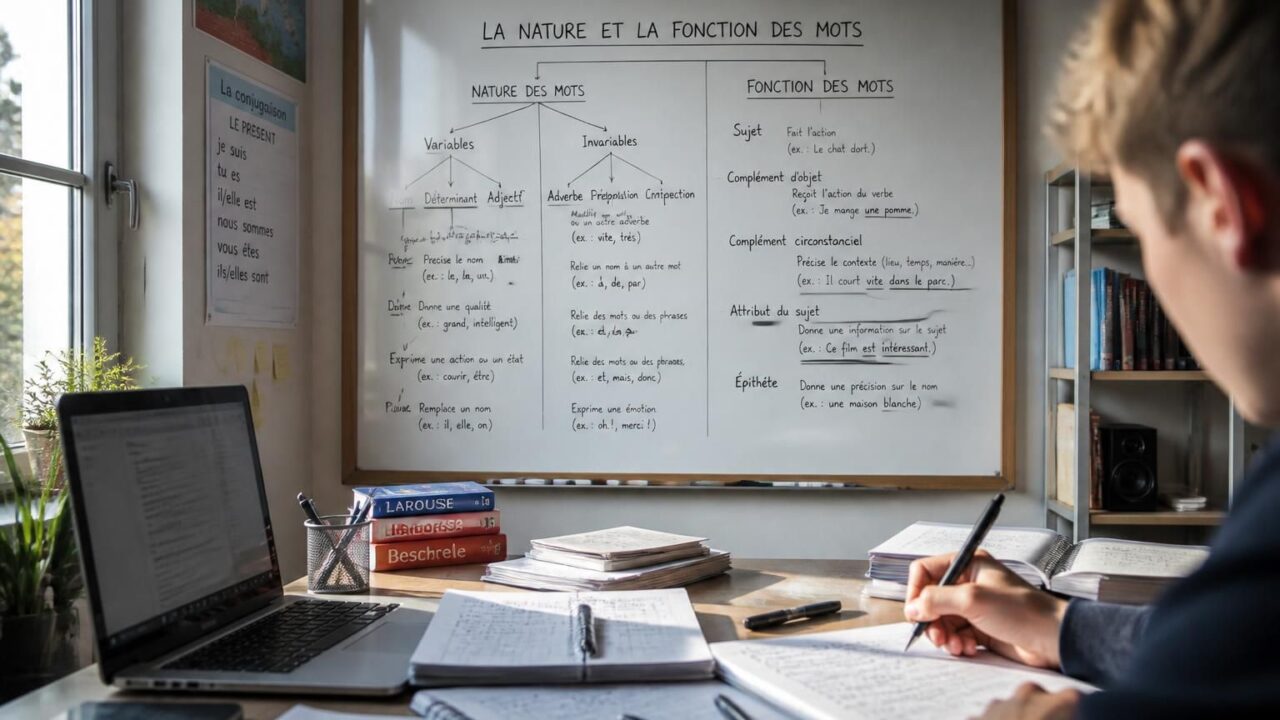 LA NATURE ET LA FONCTION DES MOTS
NATURE DES MOTS
Variables
Invariables
Déterminant Adjectif
Adverbe
ou un autre adverbe
(ex. : vite, très)
Précise le nom
(ex. : le, la, un.)
Relie un nom à un autre mot
(ex. : à, de, par)
Donne une qualité
(ex. : grand, intelligent)
Relie des mots ou des phrases
(ex. :
Exprime une action ou un état
(ex. : courir, être)
Relie des mots ou des phrases,
(ex. : et, mais, donc)
Remplace un nom
(ex. : il, elle, on)
Exprime une émotion
(ex. : oh!, merci!)
FONCTION DES MOTS
Sujet Fait l'action
(ex. : Le chat dort.)
Complément d'objet
Reçoit l'action du verbe
(ex. : Je mange une pomme.)
Complément circonstanciel
Précise le contexte (lieu, temps, manière...)
(ex. : Il court vite dans le parc.)
Attribut du sujet
Donne une information sur le sujet
(ex. : Ce film est intéressant.)
Épithète Donne une précision sur le nom
(ex. : une maison blanche)
La conjugaison
LE PRÉSENT
je suis
tu es
il/elle est
nous sommes
vous êtes
ils/elles sont
LAROUSSE
Beschrele